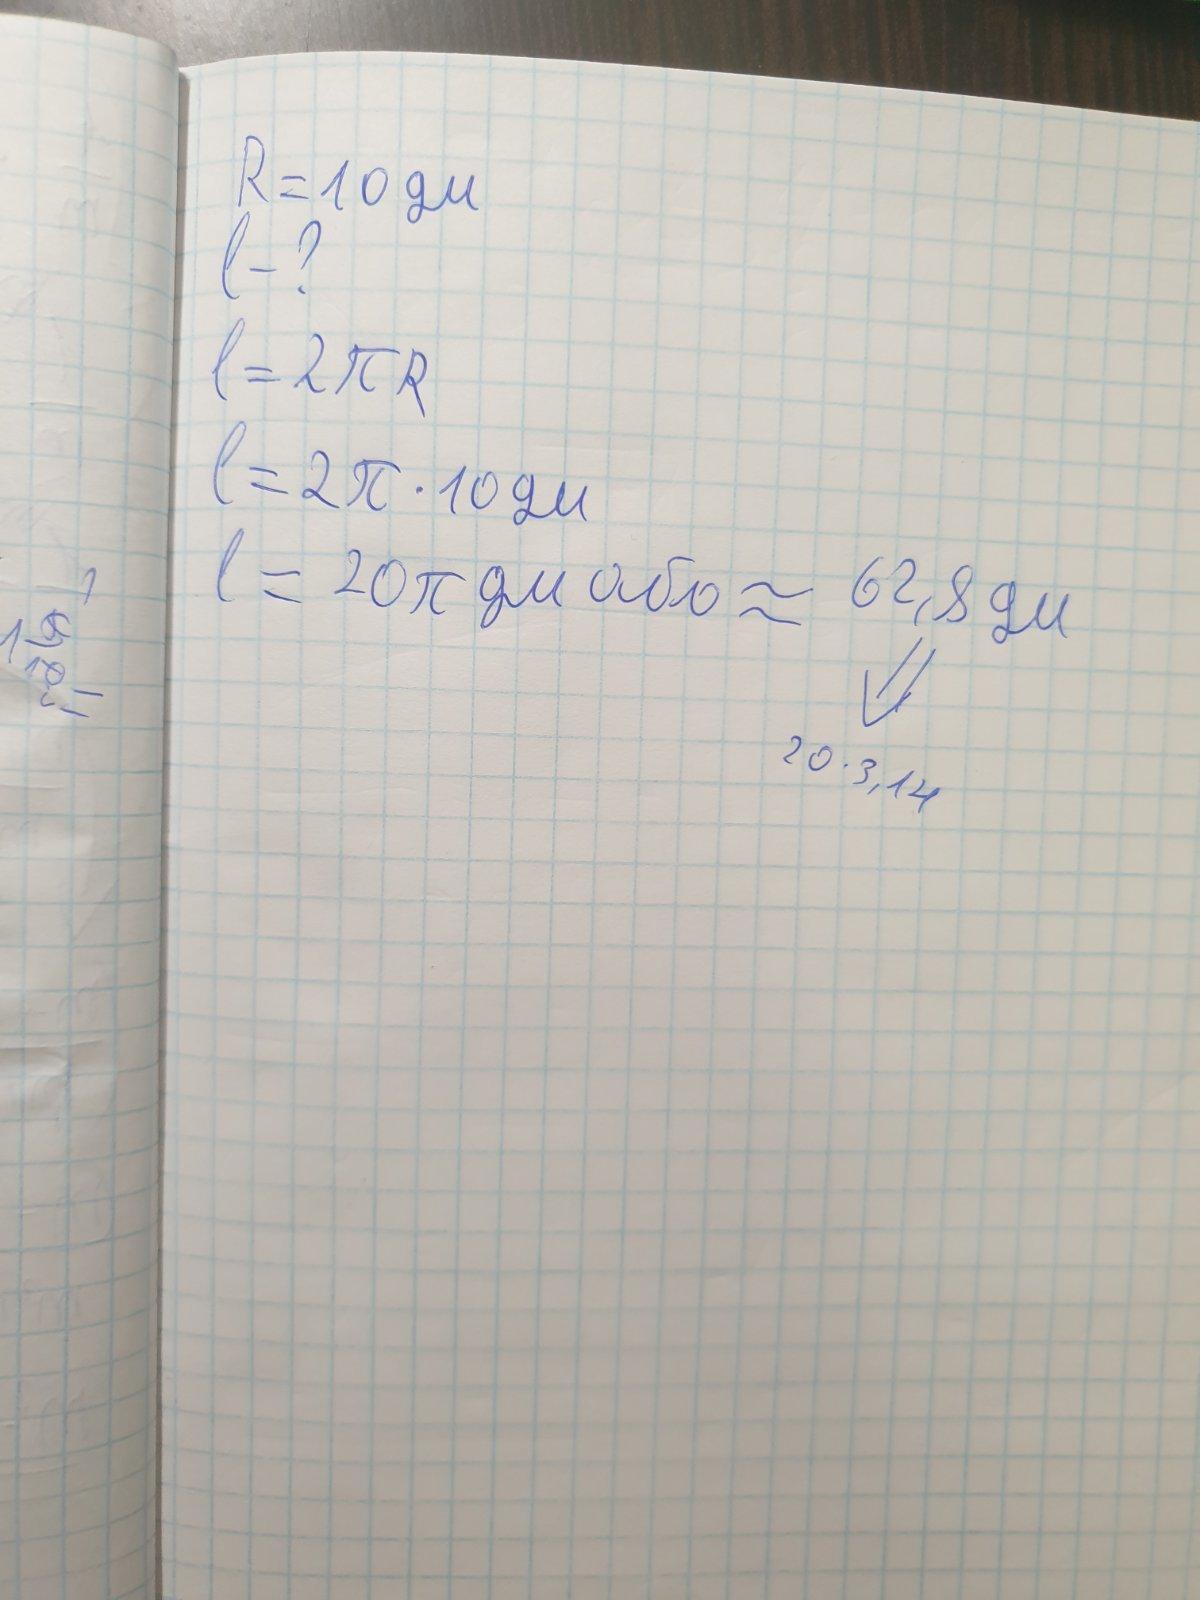 R = 10 дм
l - ?
l = 2πR
l = 2π · 10 дм
l = 20π дм або ≈ 62,8 дм
20 · 3,14